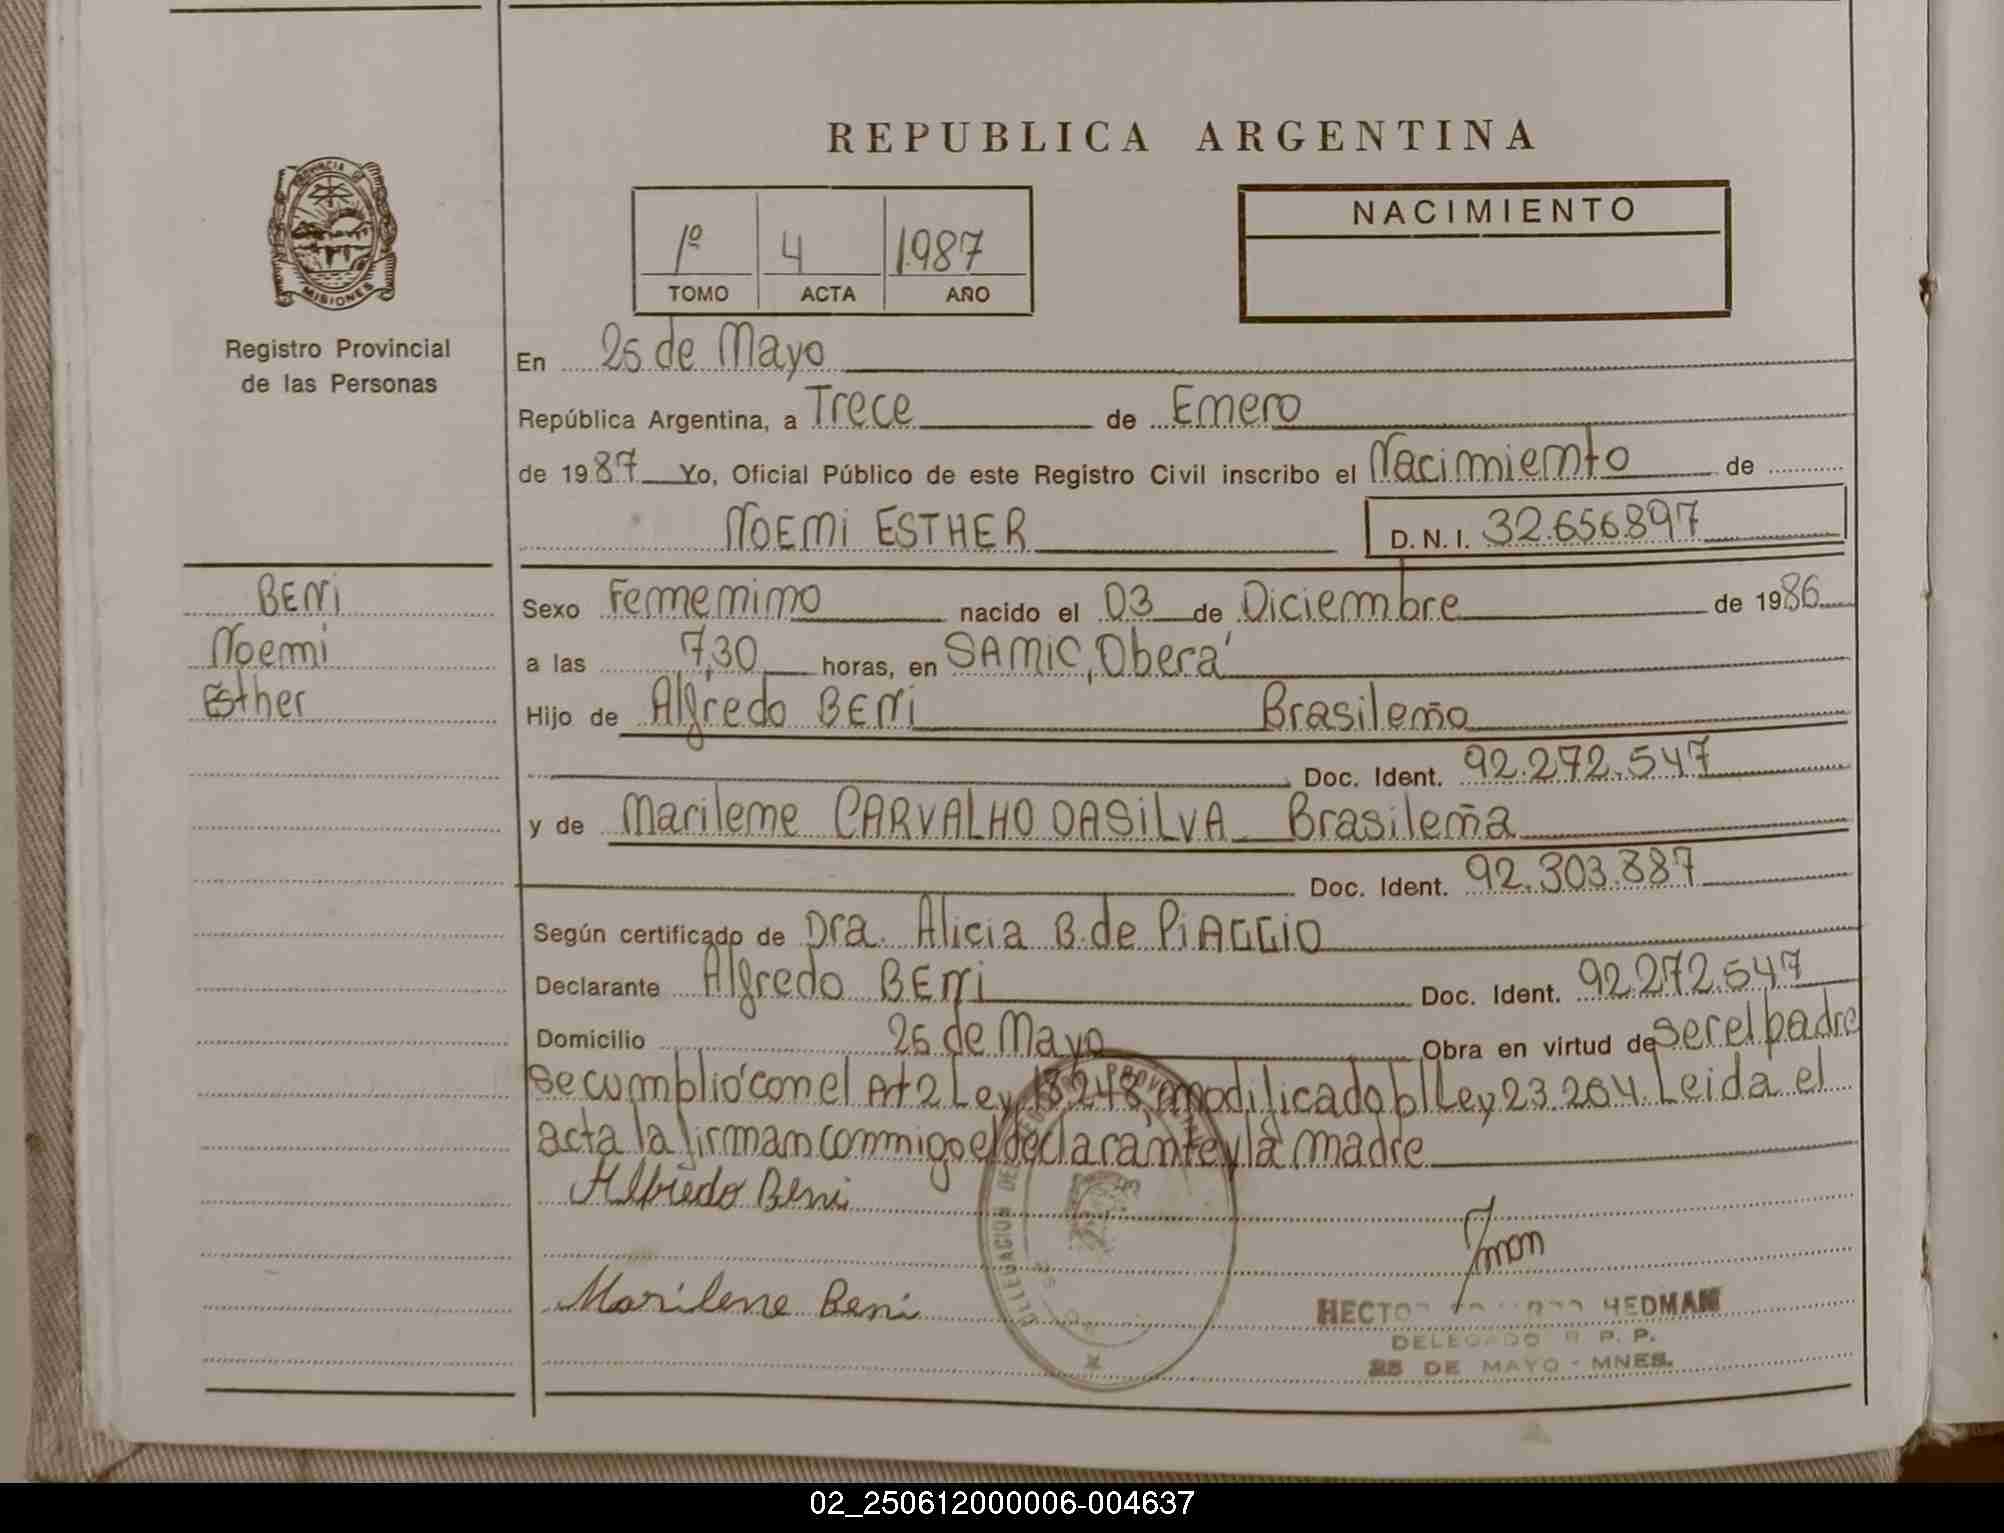 REPUBLICA ARGENTINA
PROVINCIA DE
MISIONES
Registro Provincial
de las Personas
1º 4 1987
TOMO ACTA AÑO
NACIMIENTO
En 25 de Mayo
República Argentina, a Trece de Enero
de 1987 Yo, Oficial Público de este Registro Civil inscribo el Nacimiento de
NOEMI ESTHER D.N.I. 32.656.897
BENI
Noemi
Esther
Sexo Femenino nacido el 03 de Diciembre de 1986
a las 7,30 horas, en SAMIC, Oberá
Hijo de Alfredo BENI Brasileño
Doc. Ident. 92.272.547
y de Marilene CARVALHO DASILVA Brasileña
Doc. Ident. 92.303.887
Según certificado de Dra. Alicia B. de PIAGGIO
Declarante Alfredo BENI Doc. Ident. 92.272.547
Domicilio 25 de Mayo Obra en virtud de ser el padre
Se cumplió con el Art 2 Ley 18248, modificado p/ Ley 23.264. Leida el
acta la firman conmigo el declarante y la madre
Alfredo Beni
Marilene Beni
DELEGACION DEL
HECTOR HEDMAN
DELEGADO R. P. P.
25 DE MAYO - MNES.
02_250612000006-004637